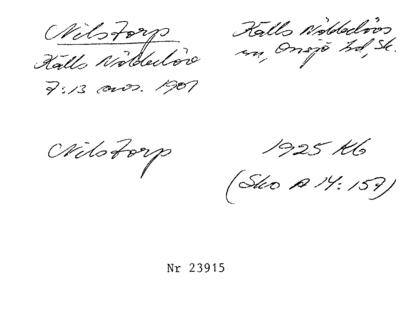 Nilstorp
Kalls Nöbbelöv
sn, Onsjö hd, Sk.
Kalls Nöbbelöv
7:13 avs. 1907
Nilstorp
1925 Kb
(Sko A 14: 157)
Nr 23915